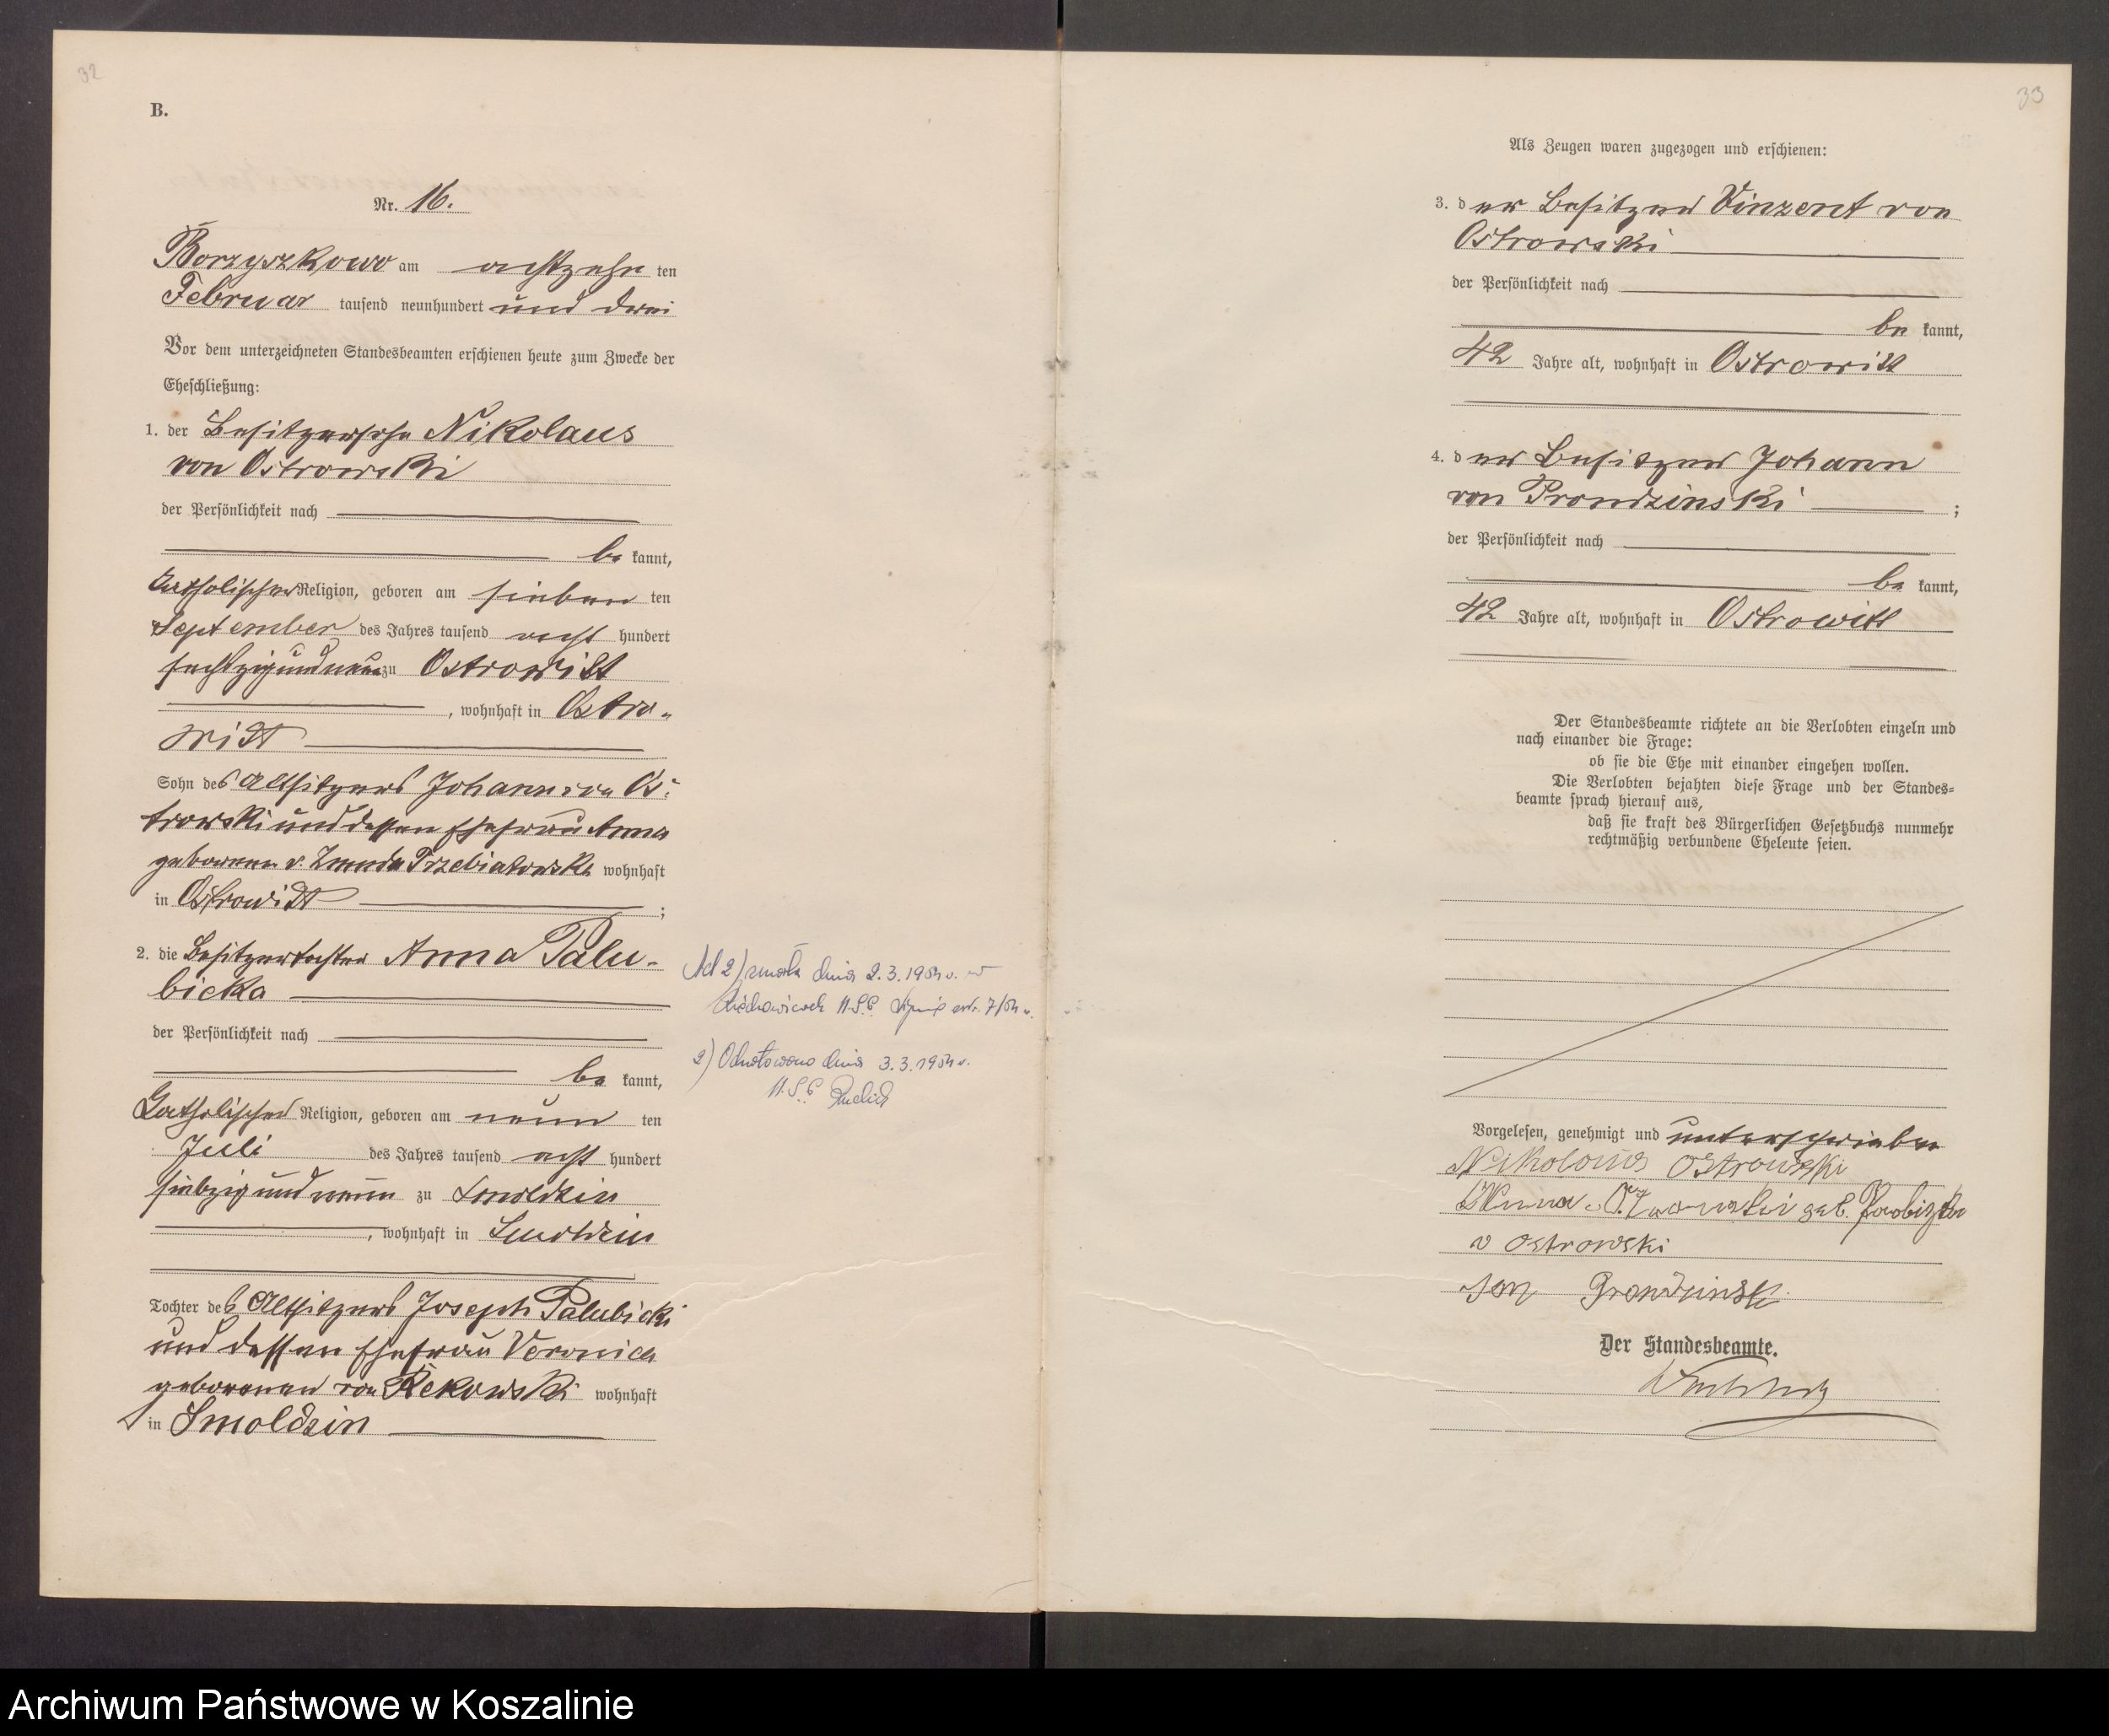 32
B.
Nr. 16.
Borzyszkowo am achtzehn ten
Februar tausend neunhundert und drei
Vor dem unterzeichneten Standesbeamten erschienen heute zum Zwecke der
Eheschließung:
1. der Besitzersohn Nikolaus
von Ostrowski
der Persönlichkeit nach
be kannt,
katholischer Religion, geboren am sieben ten
September des Jahres tausend acht hundert
sechzig und neun zu Ostrowitt
, wohnhaft in Ostro-
witt
Sohn des Altsitzers Johann von Os-
trowski und dessen Ehefrau Anna
geborenen v. Zmuda Trzebiatowska wohnhaft
in Ostrowitt ;
2. die Besitzertochter Anna Palu-
bicka
der Persönlichkeit nach
be kannt,
katholischer Religion, geboren am neun ten
Juli des Jahres tausend acht hundert
siebzig und neun zu Smoldzin
, wohnhaft in Smoldzin
Tochter des Altsitzers Joseph Palubicki
und dessen Ehefrau Veronica
geborenen von Rekowski wohnhaft
in Smoldzin
Ad 2) zmarła dnia 2.3.1954 r. w
U.S.C. 7/54 r.
2) Odnotowano dnia 3.3.1954 r.
U.S.C.
33
Als Zeugen waren zugezogen und erschienen:
3. der Besitzer Vinzent von
Ostrowski
der Persönlichkeit nach
be kannt,
42 Jahre alt, wohnhaft in Ostrowitt
4. der Besitzer Johann
von Prondzinski ;
der Persönlichkeit nach
be kannt,
42 Jahre alt, wohnhaft in Ostrowitt
Der Standesbeamte richtete an die Verlobten einzeln und
nach einander die Frage:
ob sie die Ehe mit einander eingehen wollen.
Die Verlobten bejahten diese Frage und der Standes-
beamte sprach hierauf aus,
daß sie kraft des Bürgerlichen Gesetzbuchs nunmehr
rechtmäßig verbundene Eheleute seien.
Vorgelesen, genehmigt und unterschrieben
Nikolaus Ostrowski
Anna v. Ostrowski geb.
v Ostrowski
von Prondzinski
Der Standesbeamte.
Archiwum Państwowe w Koszalinie